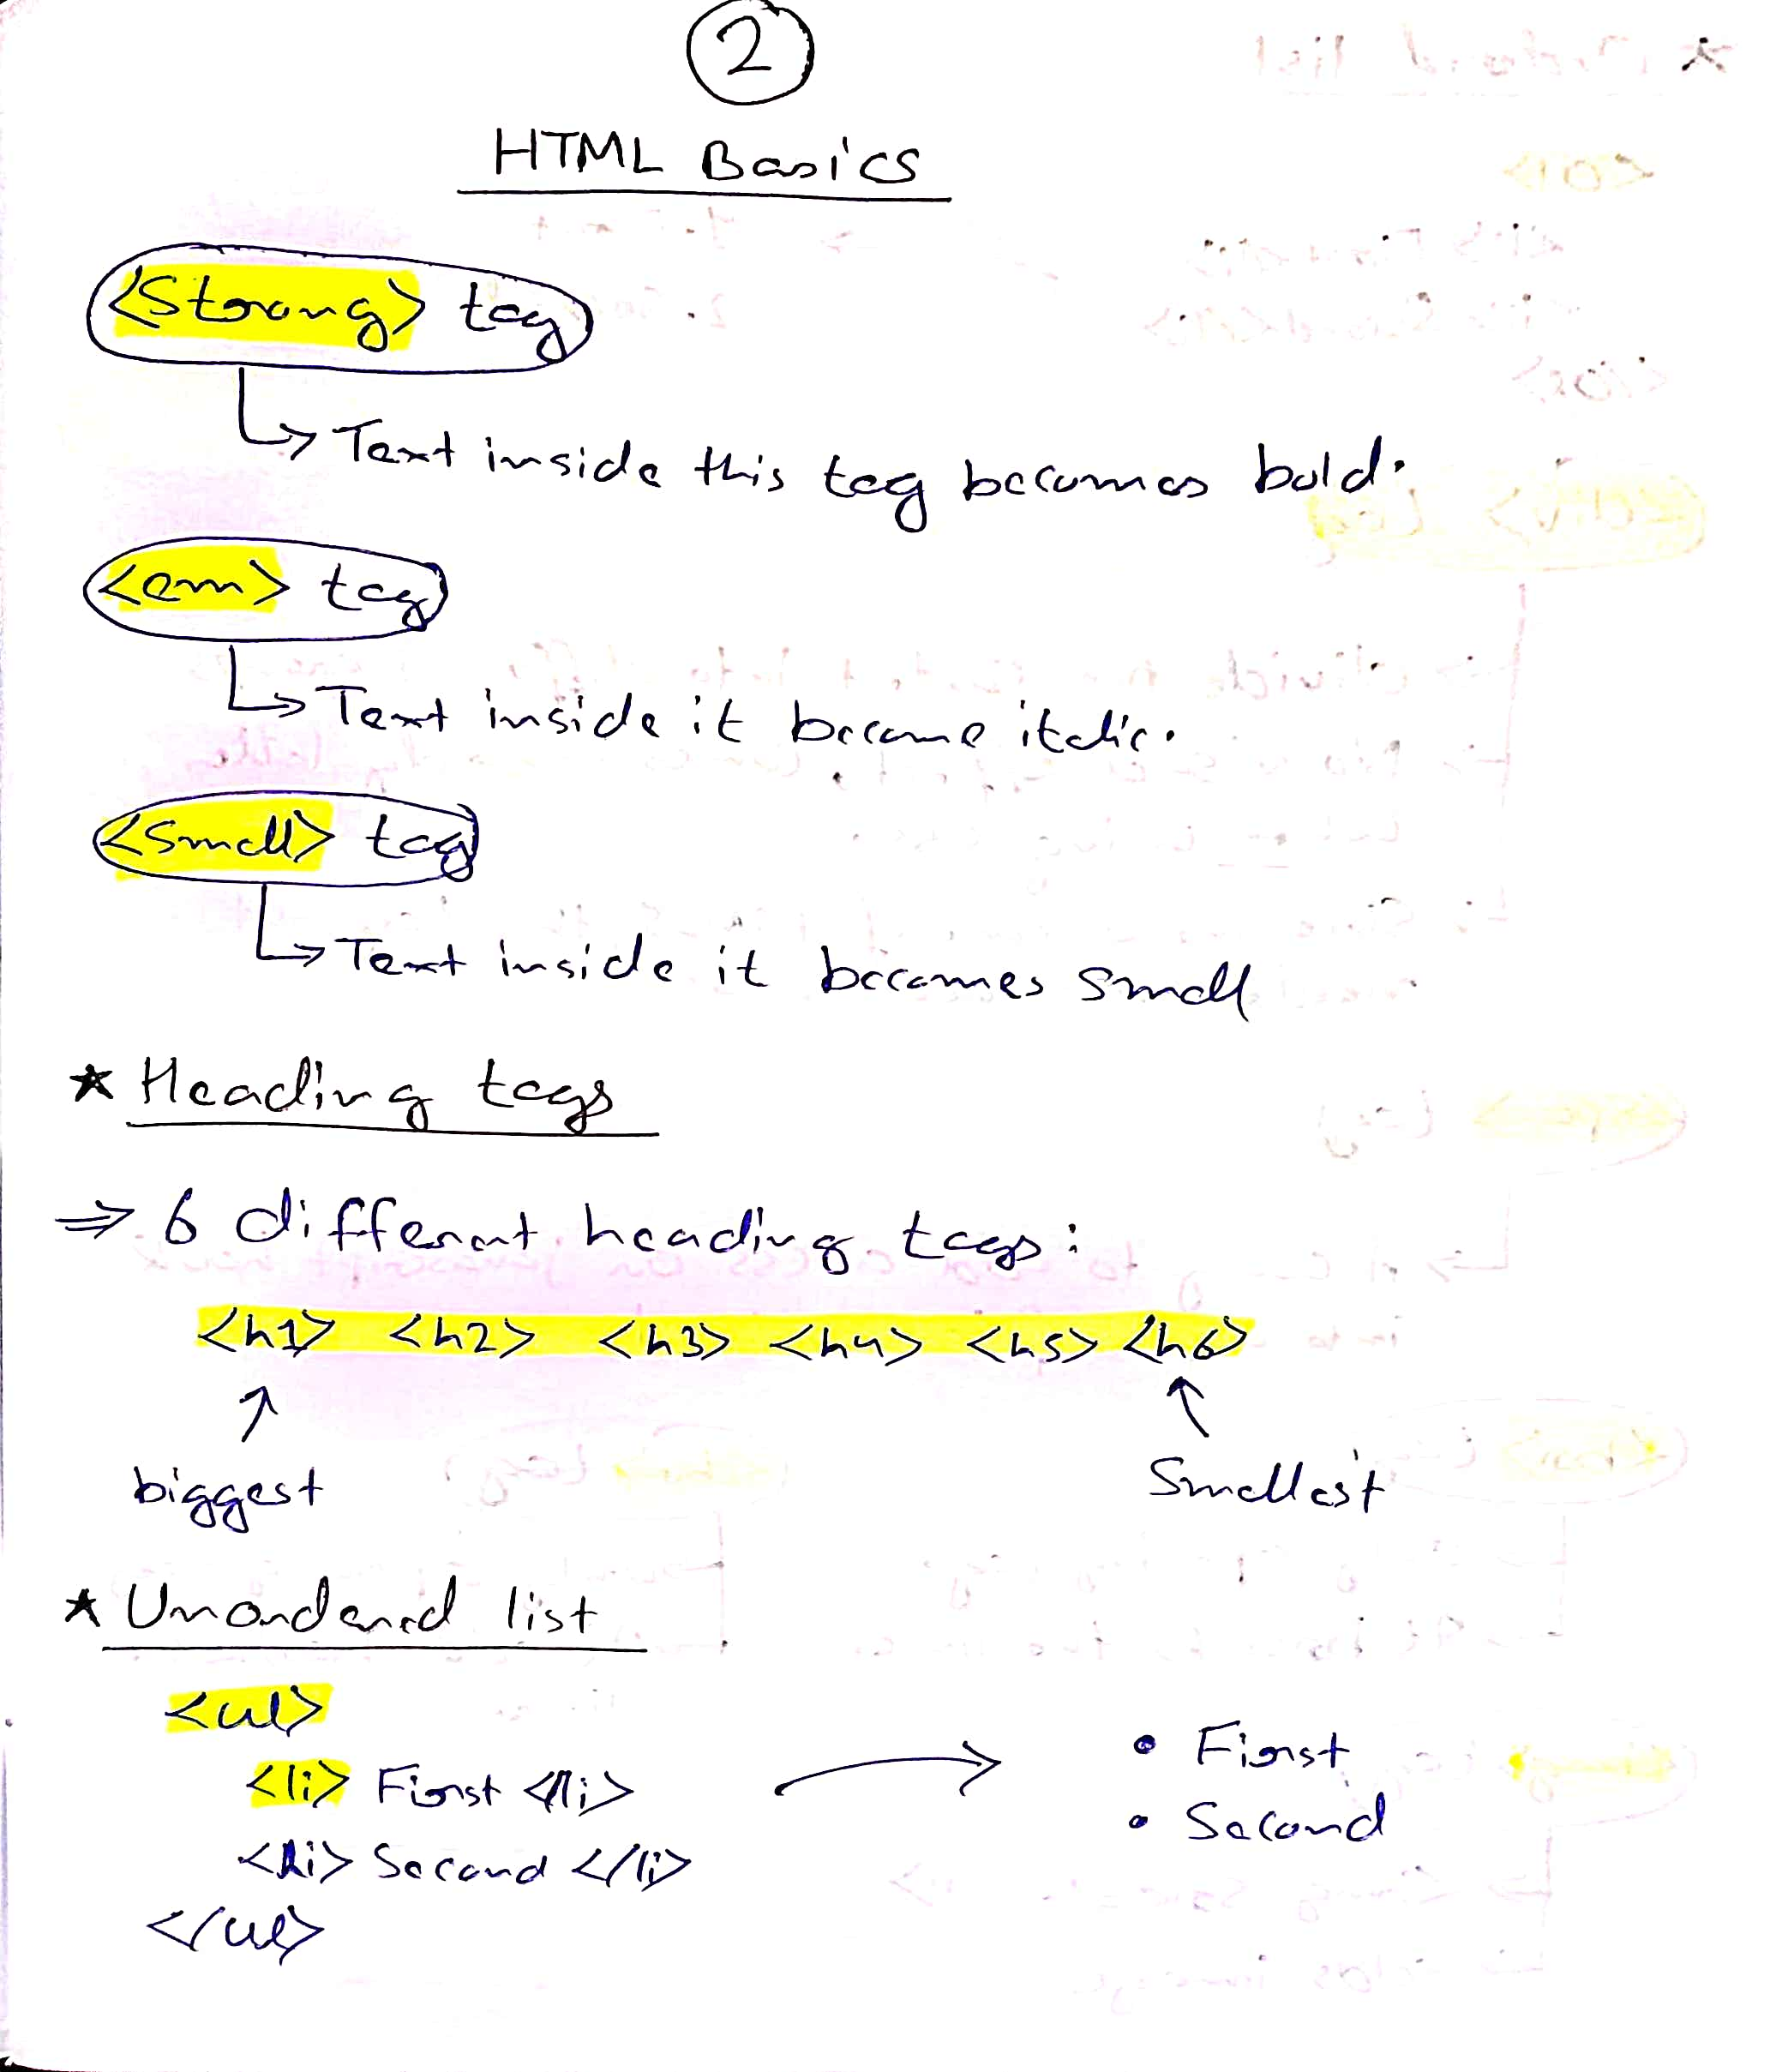 2
HTML Basics
<Strong> tag
Text inside this tag becomes bold.
<em> tag
Text inside it become italic.
<small> tag
Text inside it becomes small
* Heading tags
⇒ 6 different heading tags:
<h1> <h2> <h3> <h4> <h5> <h6>
↑ ↑
biggest Smallest
* Unordered list
<ul>
<li> First </li> → • First
<li> Second </li> • Second
</ul>